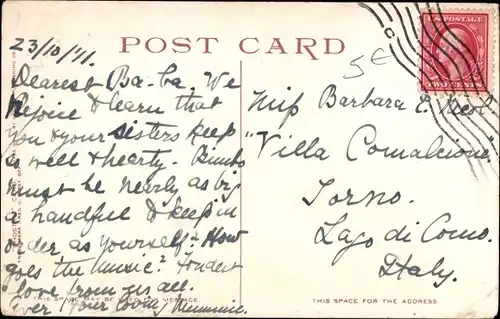 23/10/'11.
POST CARD
U.S. POSTAGE
TWO CENTS
5€
Dearest Ba-ba. We
rejoice to learn that
you & your sisters keep
so well & hearty. Bimbo
must be nearly as big
a handful to keep in
order as yourself? How
goes the music? Fondest
love from us all.
Ever your loving
THIS SPACE MAY BE USED FOR MESSAGE
Miss Barbara E.
"Villa Comalcione
Torno.
Lago di Como.
Italy.
THIS SPACE FOR THE ADDRESS